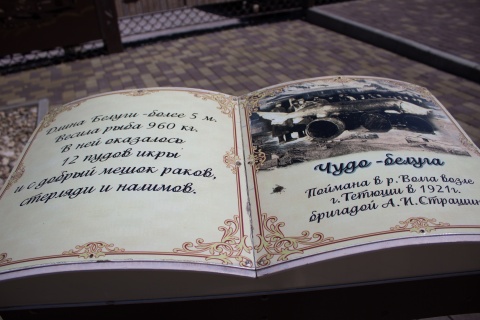 Длина Белуги -более 5 м.
Весила рыба 960 кг.
В ней оказалось
12 пудов икры
и с добрый мешок раков,
стерляди и налимов.
Чудо -белуга
Поймана в р. Волга возле
г. Тетюши в 1921г.
бригадой А.И.Страшин